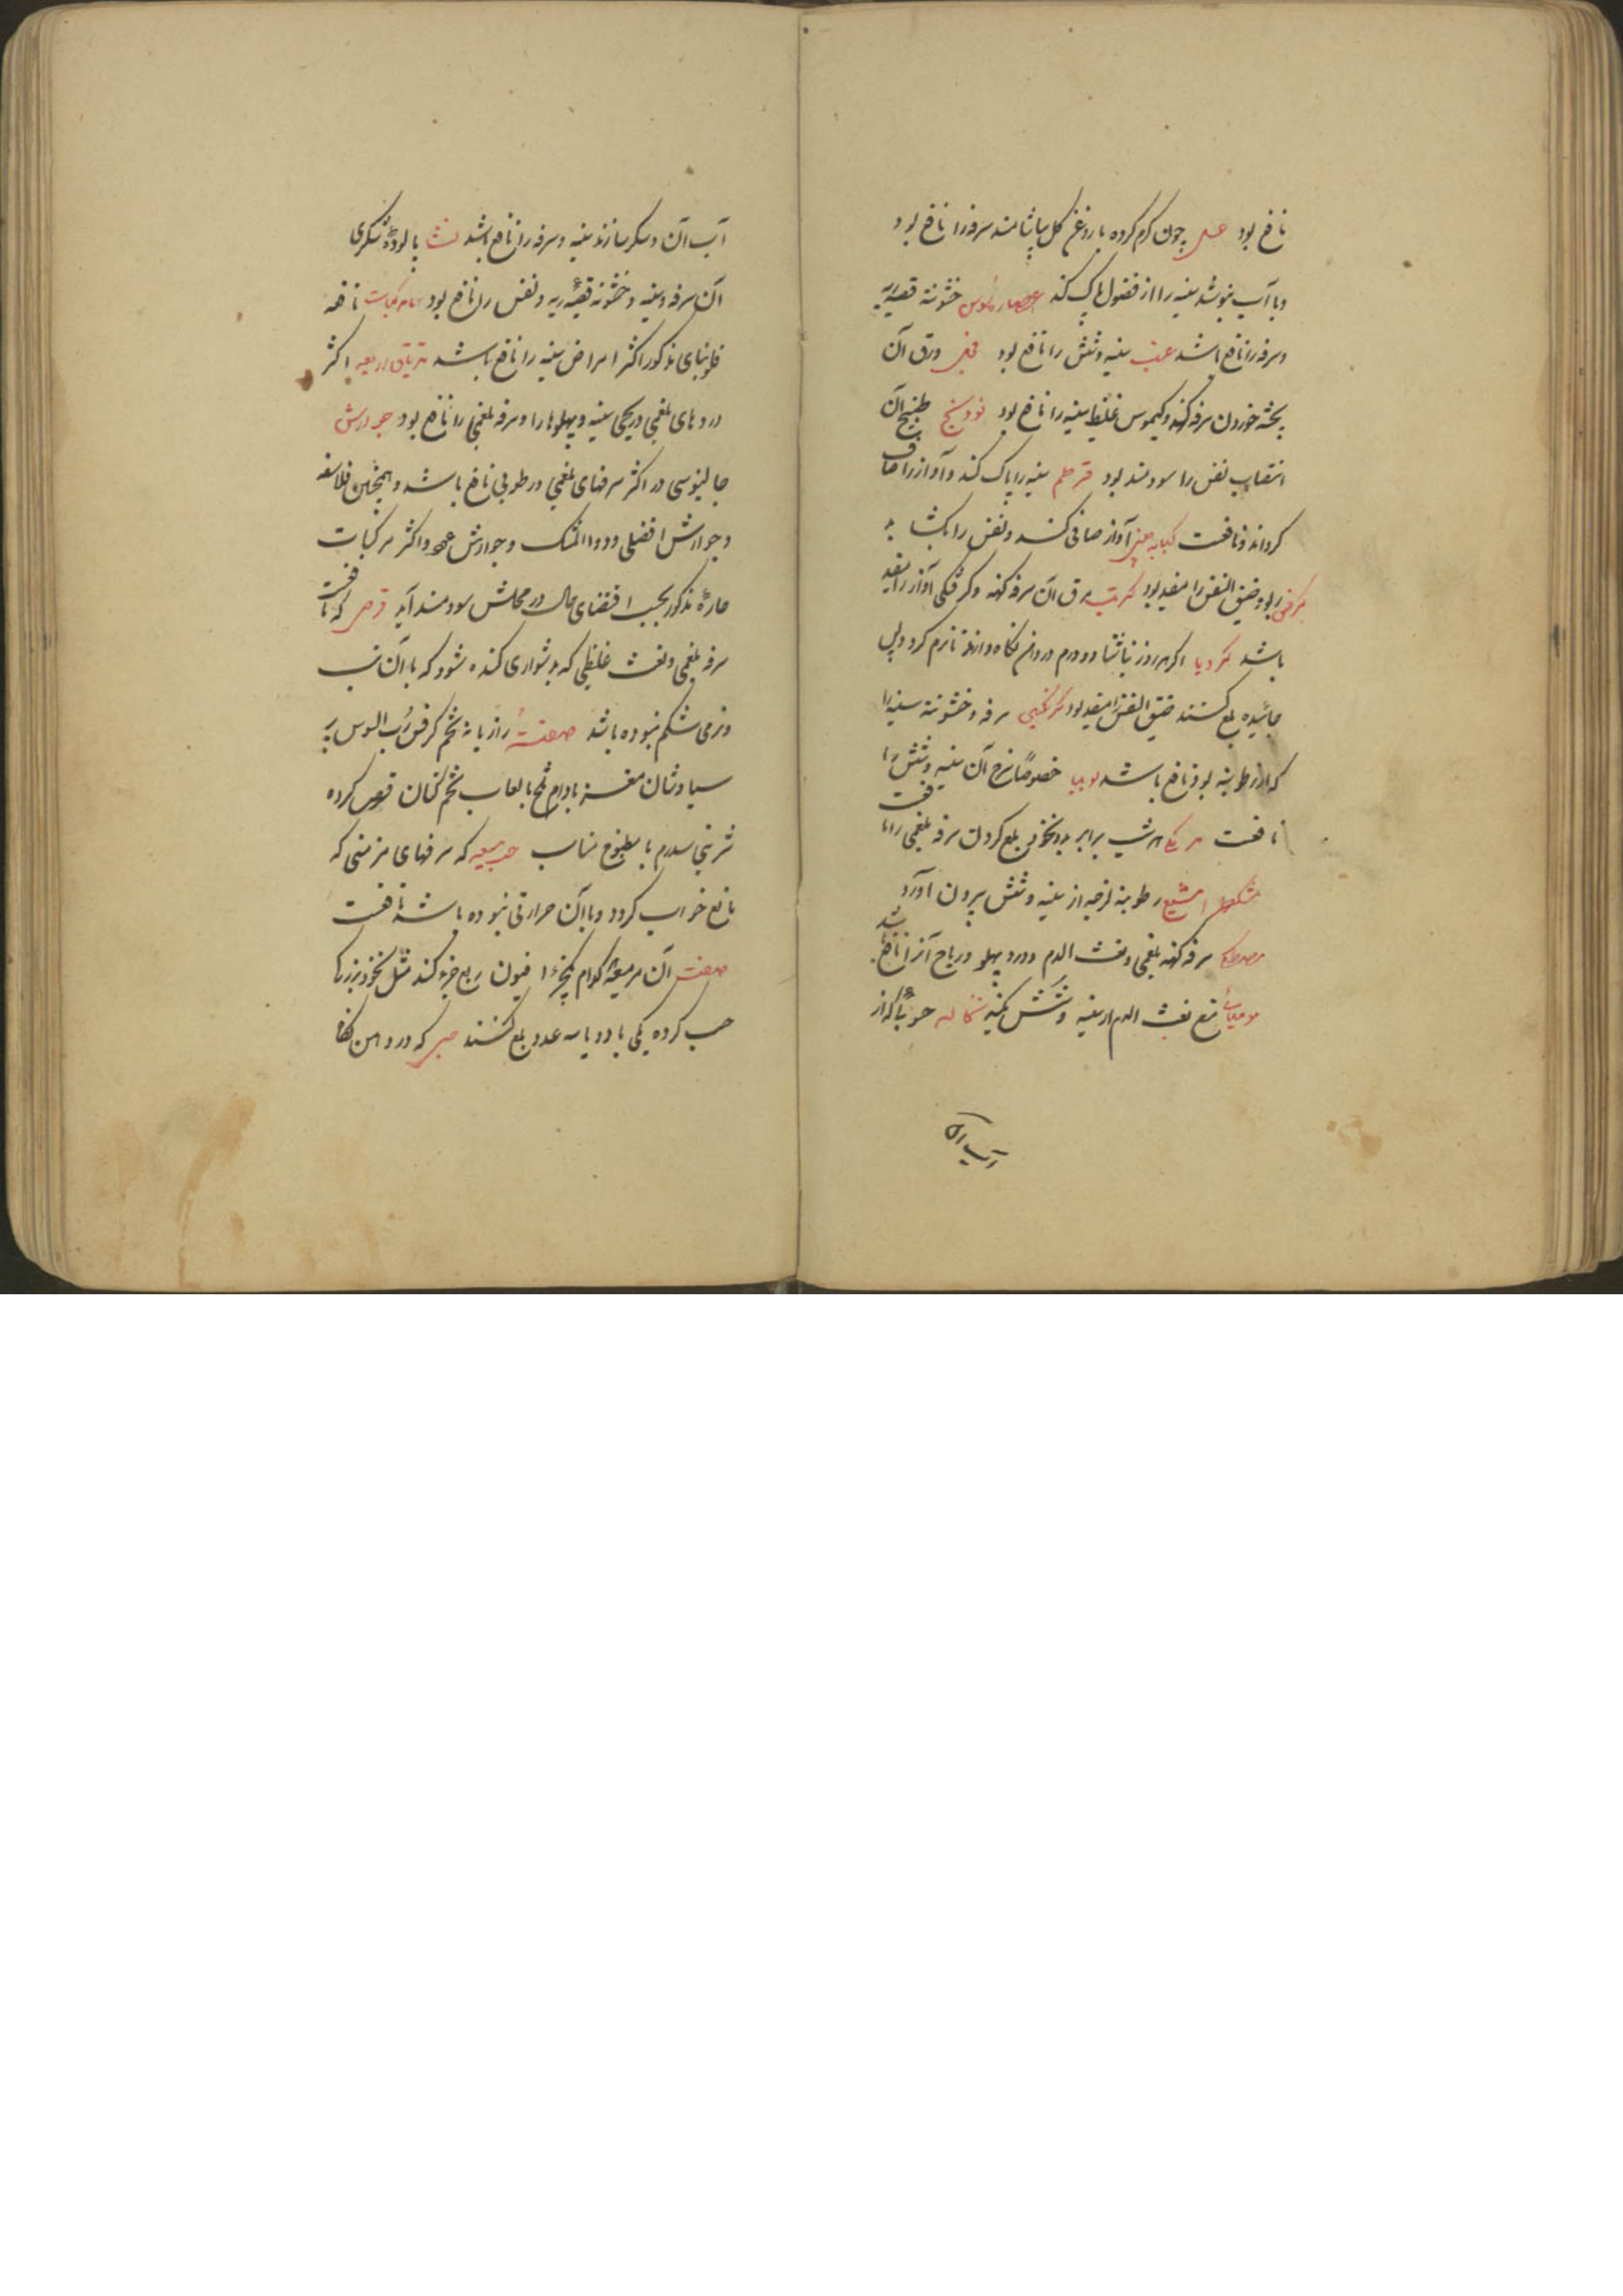 نافع بود عسل چون گرم کرده با روغن گل بیاشامند سرفه را نافع بود
و با آب بنوشد سینه را از فضول پاک کند عصاره سوس خشونة قصبه ریه
و سرفه را نافع باشد عنب سینه و شش را نافع بود ورق آن
پخته خوردن سرفه کهنه و کیموس غلیظ سینه را نافع بود فودنج طبیخ آن
انتصاب نفس را سودمند بود قرطم سینه را پاک کند و آواز را صاف
گرداند و نافعست کبابه چینی آواز صافی کند و نفس را بکشاید
کرفس ربو و ضیق النفس را مفید بود کرنب مرق آن سرفه کهنه و گرفتگی آواز را مفید
باشد کرویا اگر هر روز ناشتا دو درم در دهان نگاه دارند تا نرم گردد و پس
خائیده بلع کنند ضیق النفس را مفید بود سرفه و خشونة سینه را
که از رطوبة بود نافع باشد لوبیا خصوصا سرخ آن سینه و شش را
نافعست مر مکی هر شب برابر نخودی بلع کردن سرفه بلغمی را نافعست
مشکطرامشیع رطوبة لزجه از سینه و شش بیرون آورد
مصطکی سرفه کهنه بلغمی و نفث الدم و درد پهلو و ریاح آنرا نافع باشد
مومیائی منع نفث الدم از سینه و شش بکند حبوبا که از
آب آن
آب آن و سکر سازند سینه و سرفه را نافع باشد نشا پالوده شکری
آن سرفه و سینه و خشونة قصبه ریه و نفس را نافع بود مرکبات نافعه
فلونیای مذکور اکثر امراض سینه را نافع باشد تریاق اربعه اکثر
دردهای بلغمی و ریحی سینه و پهلوها را و سرفه بلغمی را نافع بود جوارش
جالینوسی در اکثر سرفهای بلغمی و رطوبی نافع باشد و همچنین فلاسفه
و جوارش افضلی و دواء المسک و جوارش عود و اکثر مرکبات
حاره مذکور بحسب اقتضای حال در محلش سودمند آید قرص که نافعست
سرفه بلغمی و نفث غلیظی که بدشواری کنده شود که با آن تب
و نرمی شکم نبوده باشد صفت رازیانه تخم کرفس رب السوس پر
سیاوشان مغز بادام تلخ با لعاب تخم کتان قرص کرده
شربتی سه درم با مطبوخ مناسب حب میعه که سرفهای مزمنی که
مانع خواب گردد و با آن حرارتی نبوده باشد نافعست
صفت آن مر میعه کدام یکجزء افیون ربع جزء کنند مثل نخود بزرگ
حب کرده یکی یا دو یا سه عدد بلع کنند که در دهن نگاه